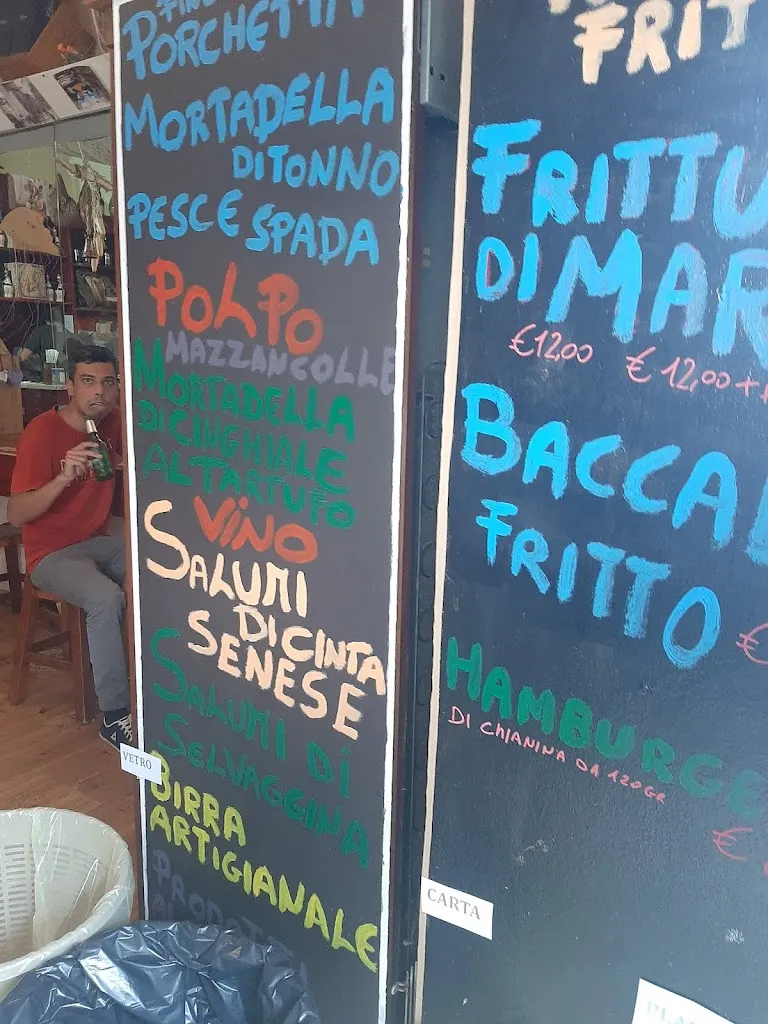 PORCHETTA
MORTADELLA
DI TONNO
PESCE SPADA
POLPO
MAZZANCOLLE
MORTADELLA
DI CINGHIALE
AL TARTUFO
VINO
SALUMI
DI CINTA
SENESE
SALUMI DI
SELVAGGINA
BIRRA
ARTIGIANALE
VETRO
FRIT
FRITTU
DI MAR
€12,00 €12,00++
BACCAL
FRITTO
€
HAMBURGE
DI CHIANINA DA 120GR
€
CARTA